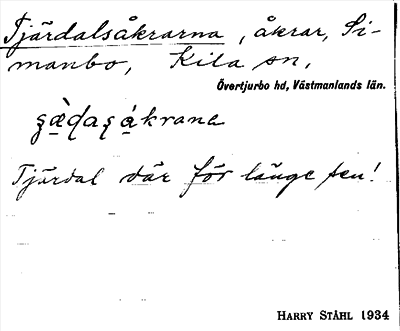 Tjärdalsåkrarna, åkrar, Si-
manbo, Kila sn,
Övertjurbo hd, Västmanlands län.
Tjärdal där för länge sen!
HARRY STÅHL 1934